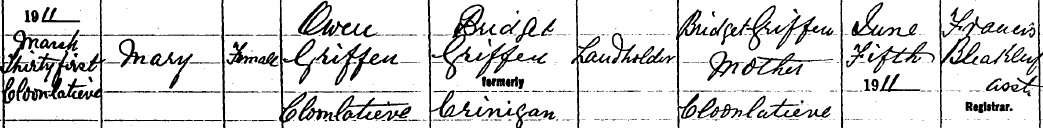 1911
March
Thirty first
Cloonlatieve
Mary
Female
Owen
Griffen
Cloonlatieve
Bridget
Griffen
formerly
Crinigan
Landholder
Bridget Griffen
Mother
Cloonlatieve
June
Fifth
1911
Francis
Bleakley
asst.
Registrar.